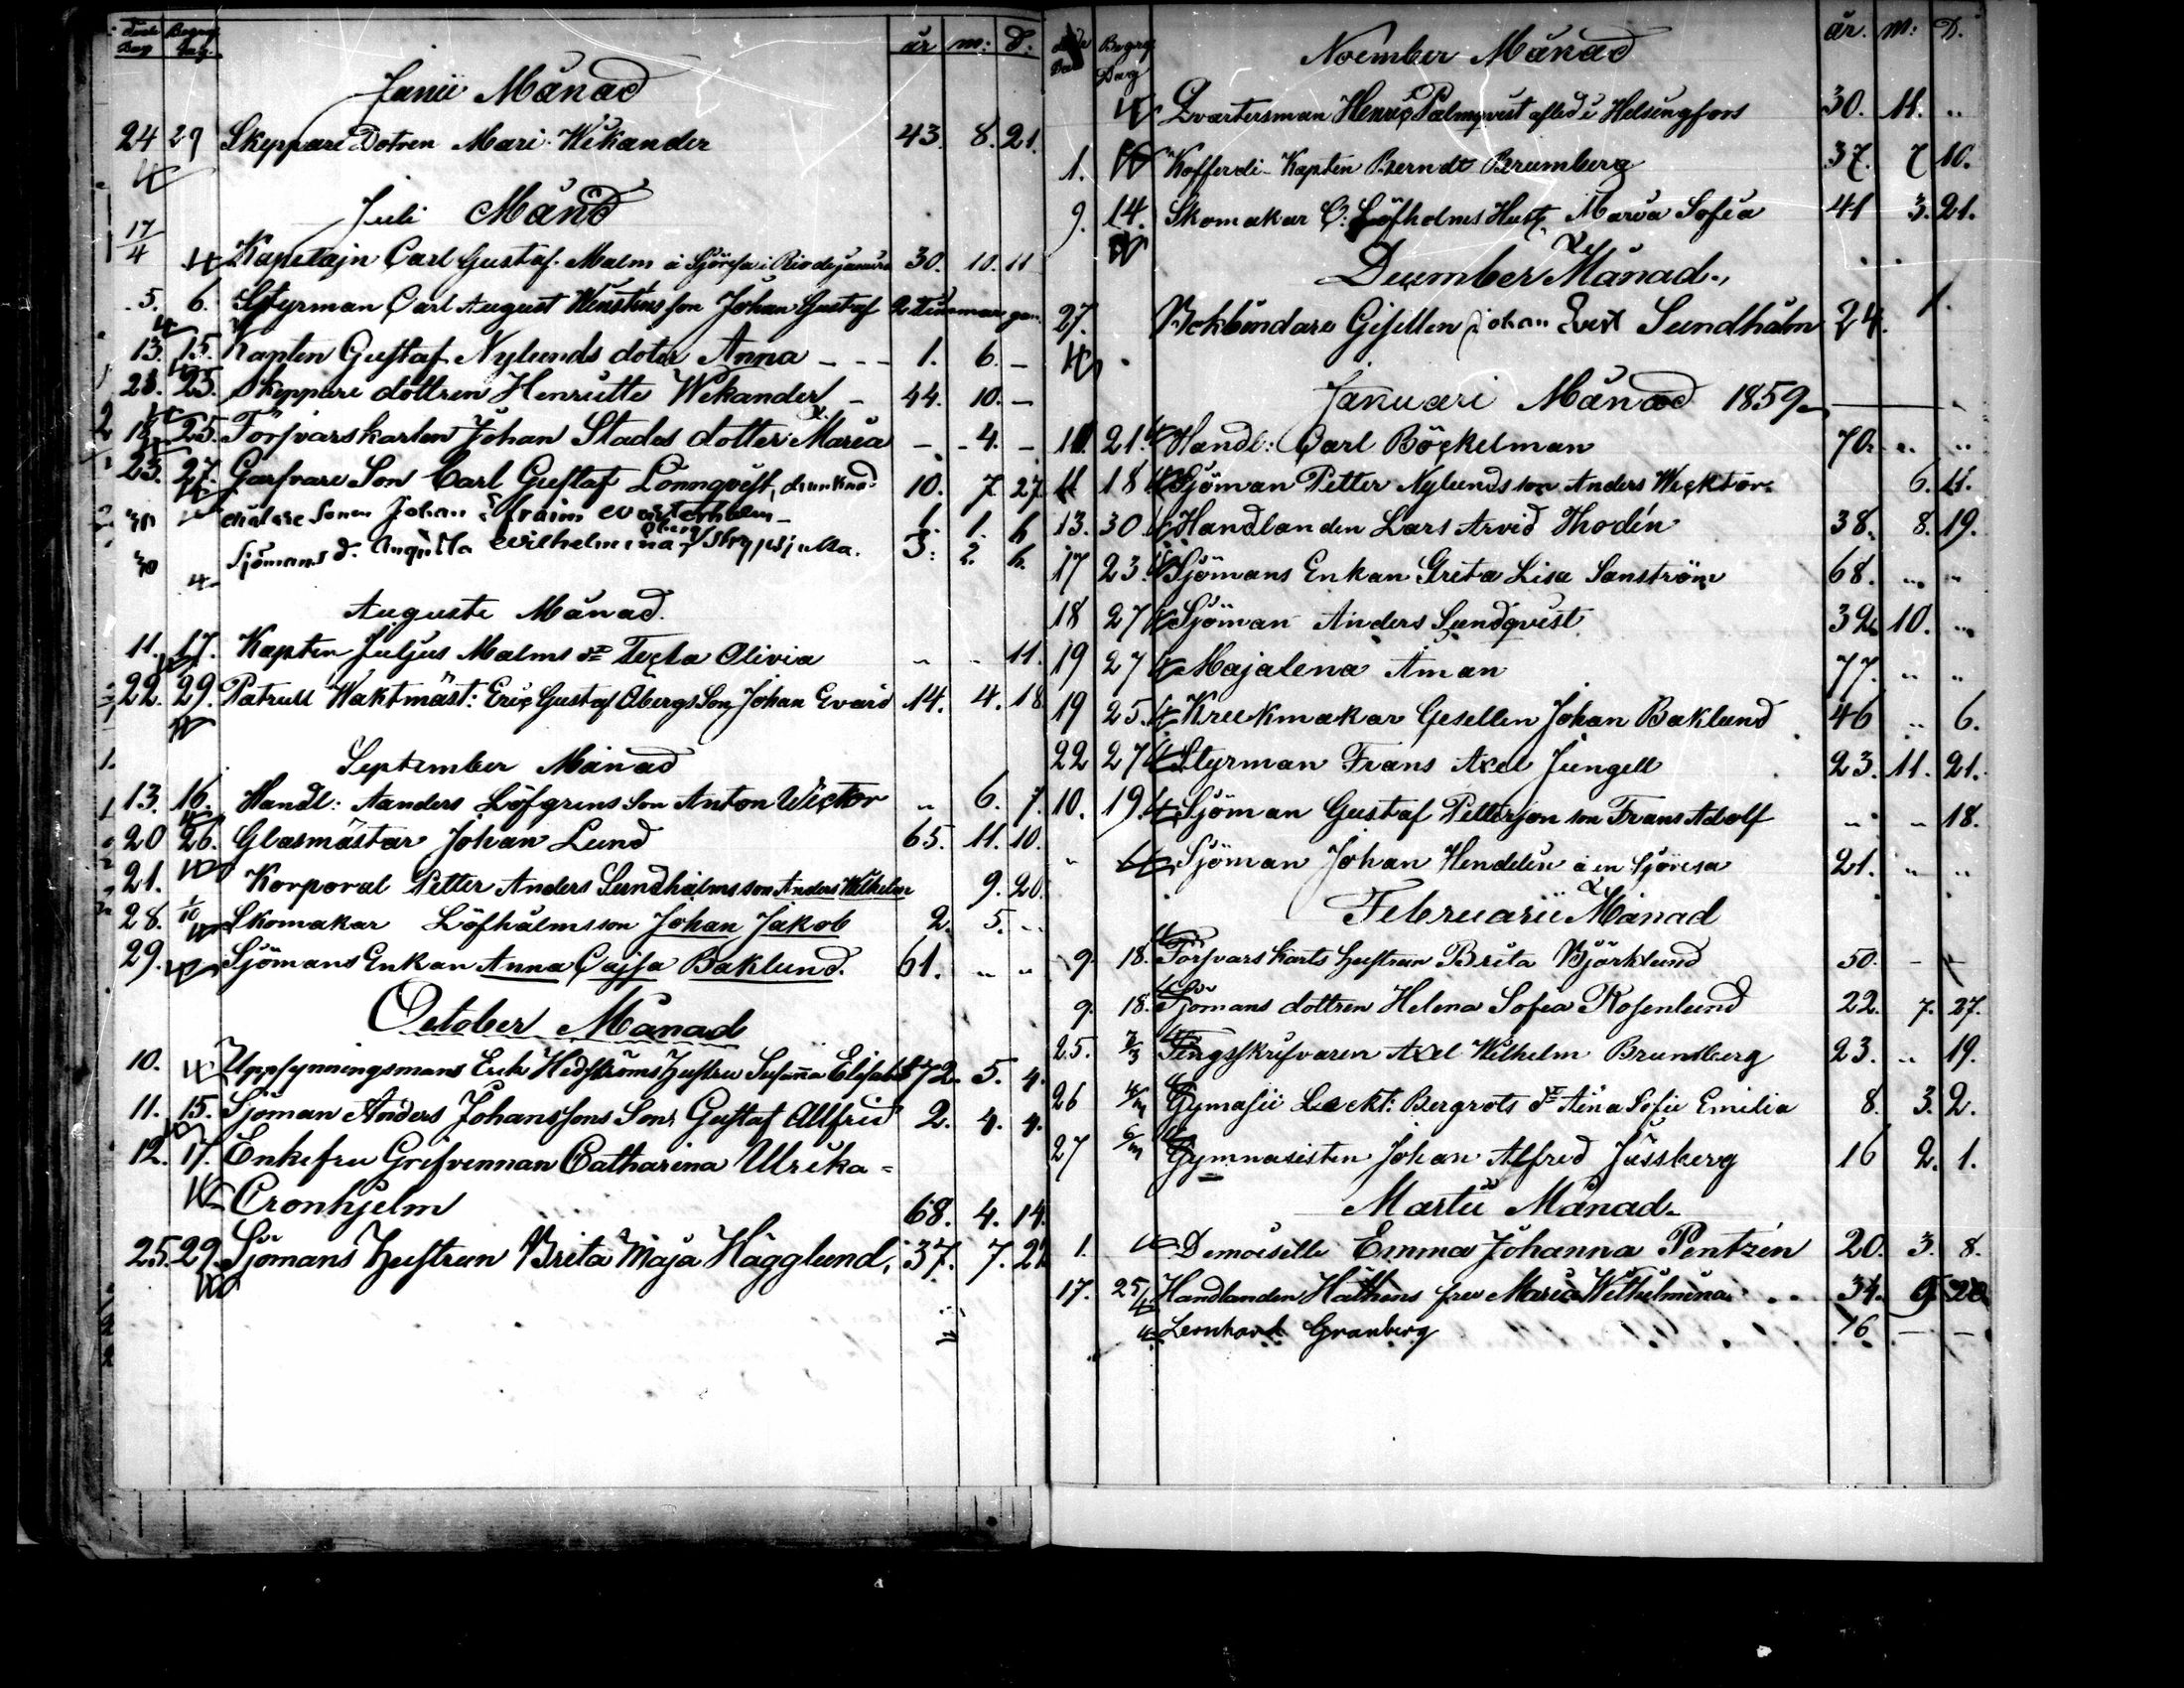 Döde Dag Begrg. dag. år m: d:
Junii Månad
24 29 Skeppare Dotren Mari Wikander 43. 8. 21.
Juli Månd
17/4 Kapetajn Carl Gustaf Malm å Sjöresa i Rio de janura 30. 10. 11
5. 6. Styrman Carl August Wensténs son Johan Gustaf
13. 15. Kapten Gustaf Nylunds doter Anna 1. 6. —
21. 25. Skeppare dottren Henriette Wekander 44. 10. —
18. 25. Försvarskarlen Johan Stades dotter Maria — 4. —
23. 27. Garfvare Son Carl Gustaf Lönnqvist, drunknad 10. 7 27
30 Sonen Johan Efraim 1. 1. 6
30 Sjömans d. Augusta Wilhelmina 3: 2. 6.
Auguste Månad.
11. 17. Kapten Juljus Malms dr Tecla Olivia „ „ 11.
22. 29. Patrull Waktmäst: Eric Gustaf Obergs Son Johan Evard 14. 4. 18
September Månad
13. 16. Handl: Aanders Löfgrens Son Anton Wictor „ 6. 7.
20 26. Glasmästar Johan Lund 65. 11. 10.
21. Korporal Petter Anders Sundholms son Anders Wilhelm 9. 20.
28. 1/10 Skomakar Löfhålms son Johan Jakob 2. 5. „
29. Sjömans Enkan Anna Cajsa Baklund. 61. „ „
October Månad
10. Uppsynningsmans Erik Hedströms Hustru Susanna Elisabet 72. 5. 4.
11. 15. Sjöman Anders Johanssons Son Gustaf Allfrid 2. 4. 4.
12. 17. Enkefru Grefvennan Catharina Ulrika=
Cronhjelm 68. 4. 14.
25. 29. Sjömans Hustrun Brita Maja Hägglund, 37. 7. 22
Begrg Dag år. M: D.
Noember Månad
Qvartersman Henric Palmqvist afled i Helsingfors 30. 11. „
1. Kofferdi Kapten Berndt Brumberg 37. 7 10.
9. 14. Skomakar C: Löfholms Hust. Maria Sofia 41 3. 21.
Deumber Månad.
27. Bokbindare Gesellen Johan Evert Sundhålm 24. 1.
Januari Månad 1859
11. 21. Handl: Carl Böckelman 70. „ „
11 18 Sjöman Petter Nylunds son Anders Wecktor 6. 11.
13. 30 Handlanden Lars Arvid Thodén 38. 8. 19.
17 23. Sjömans Enkan Greta Lisa Sanström 68. „ „
18 27 Sjöman Anders Sundqvist 32 10. „
19 27 Majalena Åman 77. „ „
19 25. Krukmakar Gesellen Johan Baklund 46 „ 6.
22 27 Styrman Frans Axel Jungell 23. 11. 21.
10. 19. Sjöman Gustaf Pettersson son Frans Adolf „ „ 18.
„ Sjöman Johan Hendelin å en Sjöresa 21. „ „
Februarii Månad
9. 18. Försvars Karls Hustrun Brita Björklund 50. — —
9. 18. Sjömans dottren Helena Sofia Rosenlund 22. 7. 27.
25. 3/3 Tingsskrifvaren Axel Wilhelm Brunsberg 23. „ 19.
26 Gymasii Leckt: Bergrots dr Aina Sofie Emilia 8. 3. 2.
27 6/m Gymnasisten Johan Alfred Jässberg 16 2. 1.
Martii Månad.
1. Demoiselle Emma Johanna Pentzén 20. 3. 8.
17. 25 Handlanden Hälthens fru Maria Wilhelmina 34. 9. 20
Lernhard Granberg 76 — —